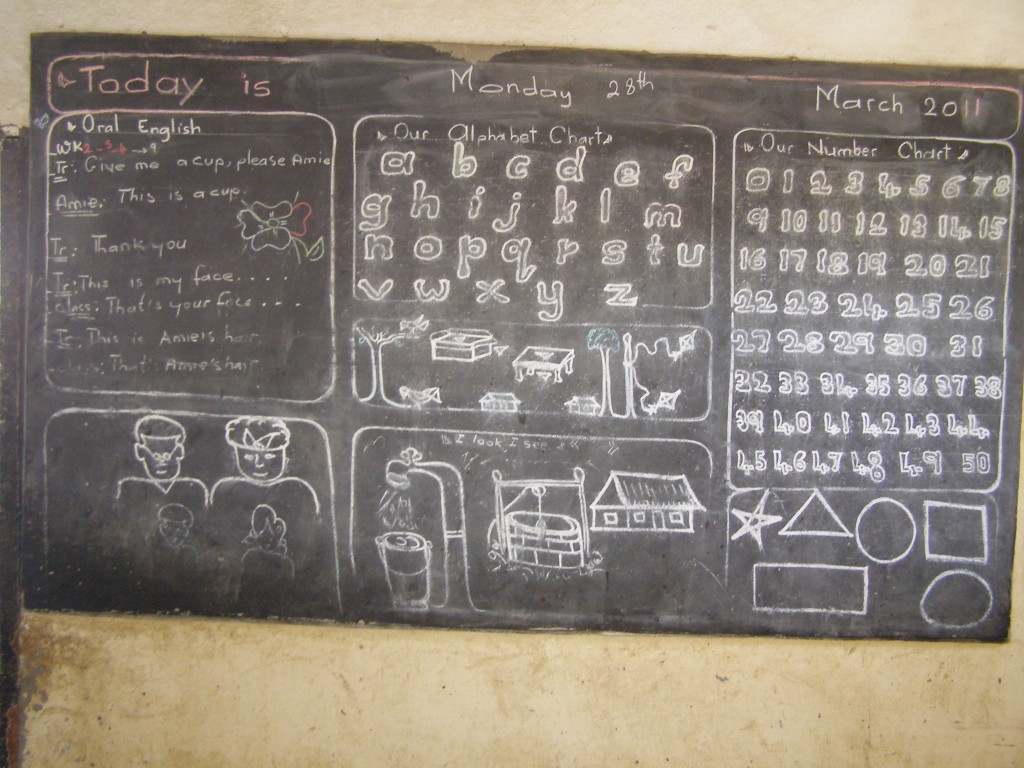 Today is Monday 28th March 2011
Oral English
WK 2-3-4 → 9
Tr: Give me a cup, please Amie
Amie: This is a cup.
Tr: Thank you
Tr: This is my face. . . .
Class: That's your face . . .
Tr: This is Amie's hair
Class: That's Amie's hair
Our Alphabet Chart
a b c d e f
g h i j k l m
n o p q r s t u
v w x y z
I look I see
Our Number Chart
0 1 2 3 4 5 6 7 8
9 10 11 12 13 14 15
16 17 18 19 20 21
22 23 24 25 26
27 28 29 30 31
32 33 34 35 36 37 38
39 40 41 42 43 44
45 46 47 48 49 50